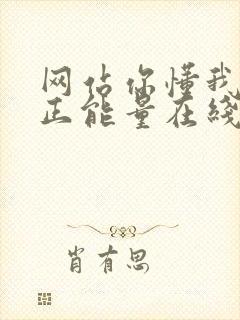 网估你懂我
正能量在线
肖有思